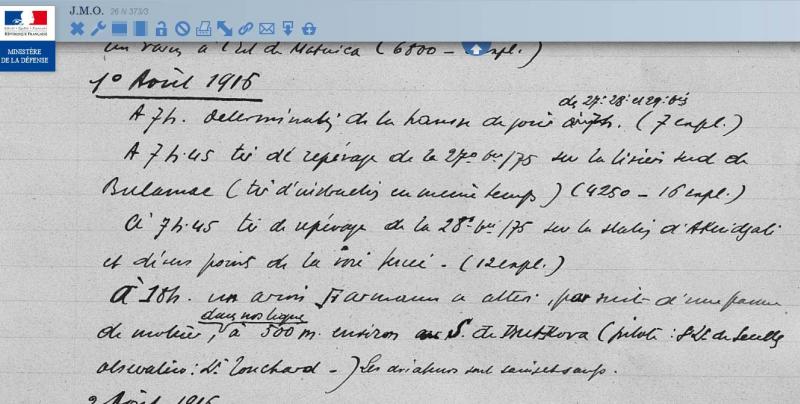 J.M.O. 26 N 373/3
RÉPUBLIQUE FRANÇAISE
MINISTÈRE
DE LA DÉFENSE
à l'Est de Matnica (6800 — expl.)
1° Août 1916
des 27e 28e et 29e bies
A 7h. determination de la hausse du jour (7 expl.)
A 7h.45 tir de repérage de la 27e bie/75 sur la lisière sud de
Bulamac (tir d'instruction en même temps) (4250 — 16 expl.)
à 7h.45 tir de repérage de la 28e bie/75 sur la station d'Akindjali
et divers points de la voie ferrée. — (12 expl.)
à 18h. un avion Farmann a atterri, par suite d'une panne
dans nos lignes
de moteur, à 500 m. environ S. de (pilote : S/Lt de
observateur : Lt Touchard —) Les aviateurs sont sains et saufs.
2 Août 1916